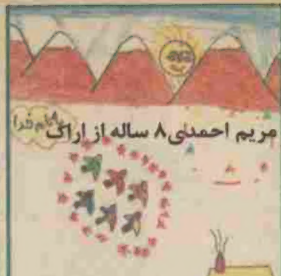 مریم احمدی ۸ ساله از اراک